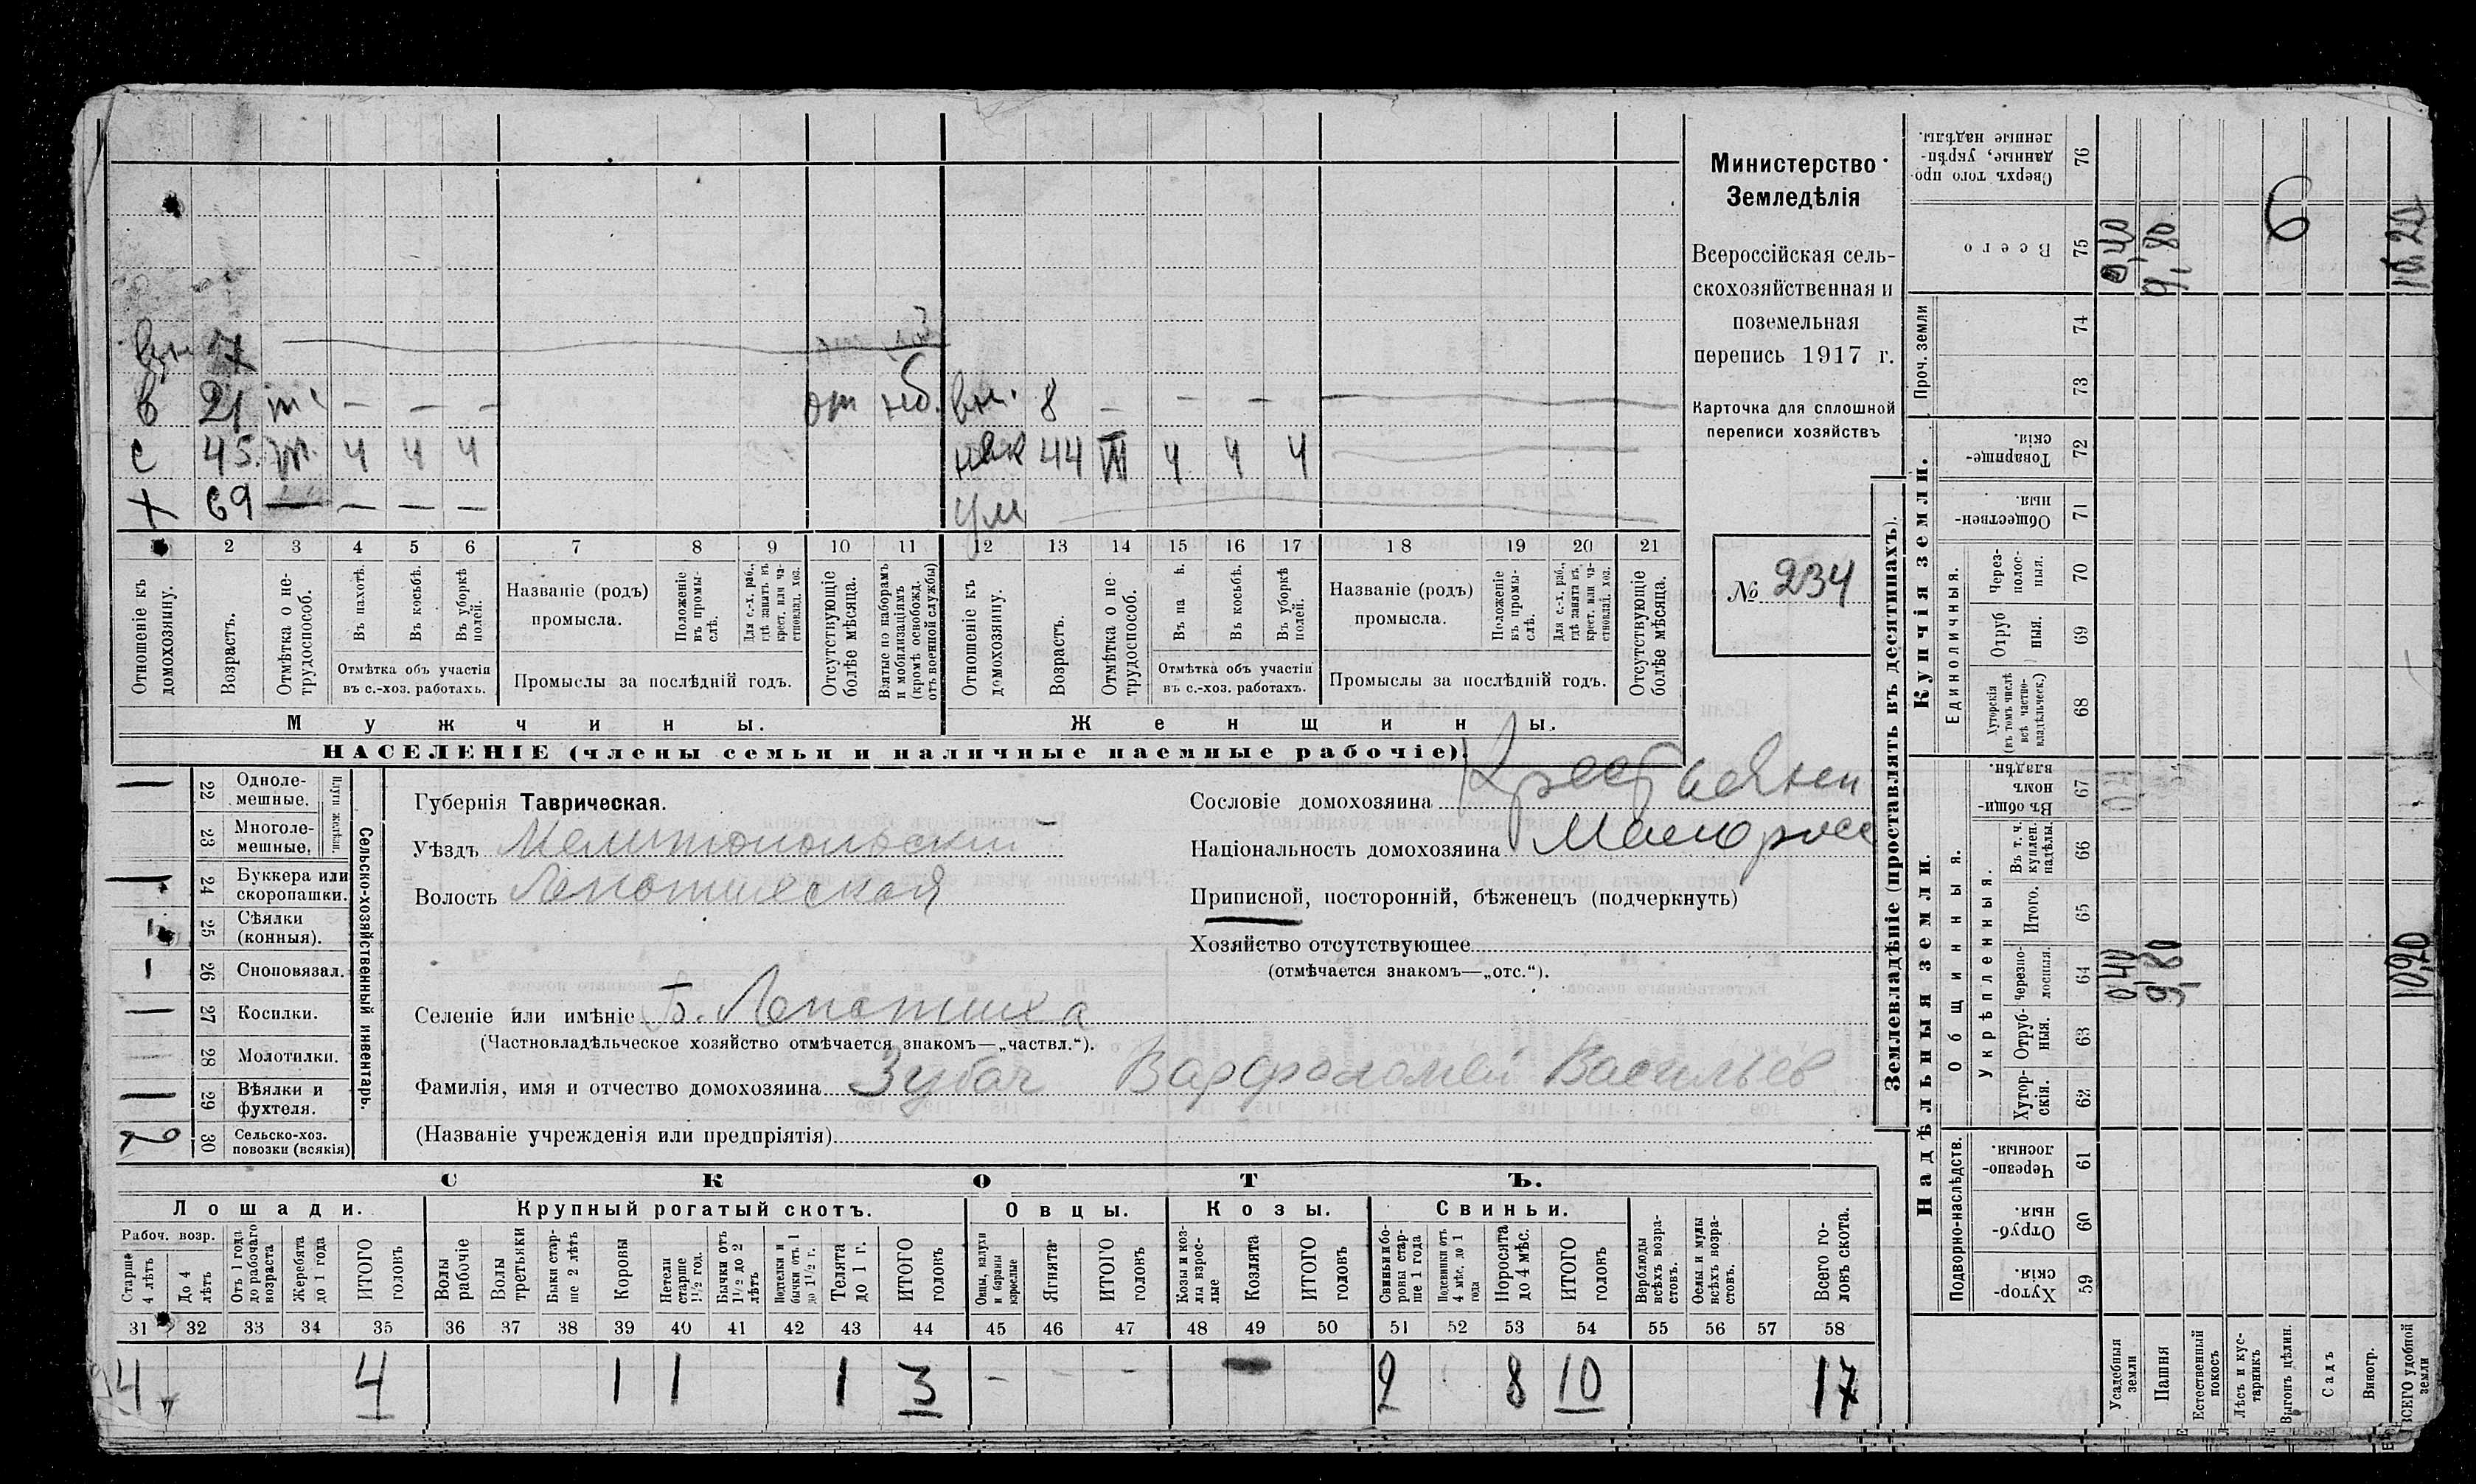 Министерство
Земледѣлія
Всероссійская сель-
скохозяйственная и
поземельная
перепись 1917 г.
Карточка для сплошной
переписи хозяйствъ
№ 234
вн 7
в 21 т — — — от наб. вн. 8 — — —
с 45. т. ч ч ч нев 44 ч ч ч
х 69 — — — — ум
1 2 3 4 5 6 7 8 9 10 11 12 13 14 15 16 17 18 19 20 21
Отношеніе къ домохозяину.
Возрастъ.
Отмѣтка о не-трудоспособ.
Въ пахотѣ.
Въ косьбѣ.
Въ уборкѣ полей.
Отмѣтка объ участіи
въ с.-хоз. работахъ.
Названіе (родъ)
промысла.
Положеніе въ промы-слѣ.
Для с.-х. раб., гдѣ занятъ въ крест. или ча-стновлад. хоз.
Промыслы за послѣдній годъ.
Отсутствующіе болѣе мѣсяца.
Взятые по наборамъ и мобилизаціямъ (кромѣ освобожд. отъ военной службы)
Отношеніе къ домохозяину.
Возрастъ.
Отмѣтка о не-трудоспособ.
Въ па ѣ.
Въ косьбѣ.
Въ уборкѣ полей.
Отмѣтка объ участіи
въ с.-хоз. работахъ.
Названіе (родъ)
промысла.
Положеніе въ промы-слѣ.
Для с.-х. раб., гдѣ занята въ крест. или ча-стновлад. хоз.
Промыслы за послѣдній годъ.
Отсутствующіе болѣе мѣсяца.
Мужчины. Женщины.
НАСЕЛЕНІЕ (члены семьи и наличные наемные рабочіе).
Сельско-хозяйственный инвентарь.
Плуги желѣзн.
22 Одноле-мешные.
23 Многоле-мешные.
24 Буккера или скоропашки.
25 Сѣялки (конныя).
26 Сноповязал.
27 Косилки.
28 Молотилки.
29 Вѣялки и фухтеля.
30 Сельско-хоз. повозки (всякія) 2
Губернія Таврическая.
Уѣздъ Мелитопольский
Волость Лепатиская
Селеніе или имѣніе Б. Лепатиха
(Частновладѣльческое хозяйство отмѣчается знакомъ—„частвл.“).
Фамилія, имя и отчество домохозяина Зубач Варфоломей Васильев
(Названіе учрежденія или предпріятія)
Сословіе домохозяина Крестьянин
Національность домохозяина Малоросс
Приписной, посторонній, бѣженецъ (подчеркнуть)
Хозяйство отсутствующее
(отмѣчается знакомъ—„отс.“).
СКОТЪ.
Лошади. Крупный рогатый скотъ. Овцы. Козы. Свиньи.
Рабоч. возр.
Старше 4 лѣтъ
До 4 лѣтъ
Отъ 1 года до рабочаго возраста
Жеребята до 1 года
ИТОГО головъ
Волы рабочіе
Волы третьяки
Быки стар-ше 2 лѣтъ
Коровы
Нетели старше 1½ год.
Бычки отъ 1½ до 2 лѣтъ
Подтелки и бычки отъ 1 до 1½ г.
Телята до 1 г.
ИТОГО головъ
Овцы, валухи и бараны взрослые
Ягнята
ИТОГО головъ
Козы и коз-лы взрос-лые
Козлята
ИТОГО головъ
Свиньи и бо-ровы стар-ше 1 года
Подсвинки отъ 4 мѣс. до 1 года
Поросята до 4 мѣс.
ИТОГО головъ
Верблюды всѣхъ возра-стовъ.
Ослы и мулы всѣхъ возра-стовъ.
Всего го-ловъ скота.
31 32 33 34 35 36 37 38 39 40 41 42 43 44 45 46 47 48 49 50 51 52 53 54 55 56 57 58
4 4 1 1 1 3 — — — — 2 8 10 17
Землевладѣніе (проставлять въ десятинахъ).
Купчія земли.
Надѣльныя земли.
Сверхъ того про-данные, укрѣп-ленные надѣлы. 76
Всего 75 0,40 9,80 6 10,20
Проч. земли 74 73
Товарище-скія. 72
Обществен-ныя. 71
Единоличныя.
Через-полос-ныя. 70
Отруб ныя. 69
Хуторскія (въ томъ числѣ всѣ частно-владѣльческ.) 68
Общинныя.
Въ общи-номъ владѣн. 67
Укрѣпленныя.
Въ т. ч. куплен. надѣлы. 66
Итого. 65
черезпо-лосныя. 64 0,40 9,80 10,20
Отруб-ныя. 63
Хутор-скія. 62
Подворно-наслѣдств.
Черезпо-лосныя. 61
Отруб-ныя. 60
Хутор-скія. 59
Усадебныя земли
Пашня
Естественный покосъ
Лѣсъ и кус-тарникъ
Выгонъ цѣлин.
Садъ
Виногр.
ВСЕГО удобной земли